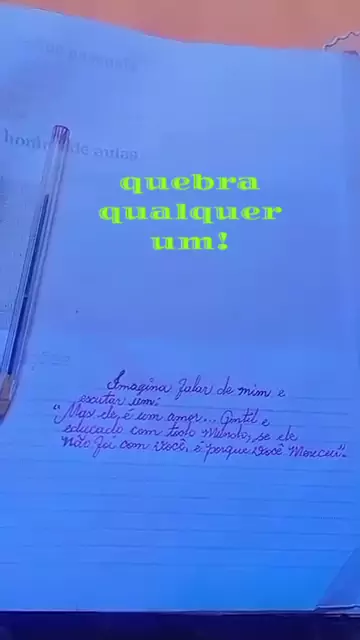 de aulas
quebra
qualquer
um!
Imagina falar de mim e
escutar um:
"Mas ele, é um amor... Gentil e
educado com todo Mundo, se ele
não foi com você, é porque você Mereceu".